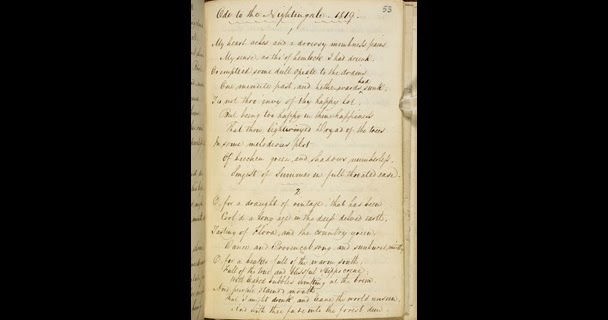 53
Ode to the Nightingale. 1819.
1
My heart aches and a drowsy numbness pains
My sense, as tho' of hemlock I had drunk
Or emptied some dull opiate to the drains
One minute past, and Lethe-wards had sunk.
Tis not thro' envy of thy happy lot,
But being too happy in thine happiness
That thou light-winged Dryad of the trees
In some melodious plot
Of beechen green, and shadows numberless,
Singest of Summer in full throated ease.
2.
O, for a draught of vintage, that has been
Cool'd a long age in the deep delved earth,
Tasting of Flora, and the country green,
Dance, and Provencal song, and sunburnt mirth,
O, for a beaker full of the warm south,
Full of the true and blissful Hippocrene,
With beaded bubbles winking at the brim,
And purple stained mouth,
That I might drink and leave the world unseen,
And with thee fade into the forest dim.